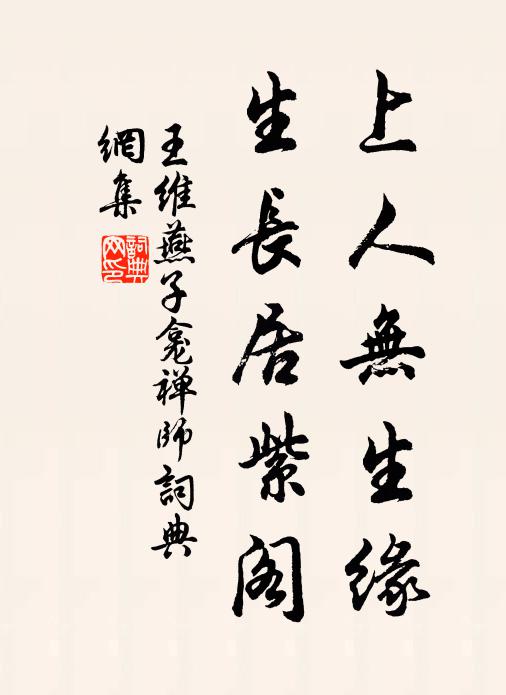 上人無生緣
生長居紫閣
王維燕子龕禪師詞典
網集
詞典
网印